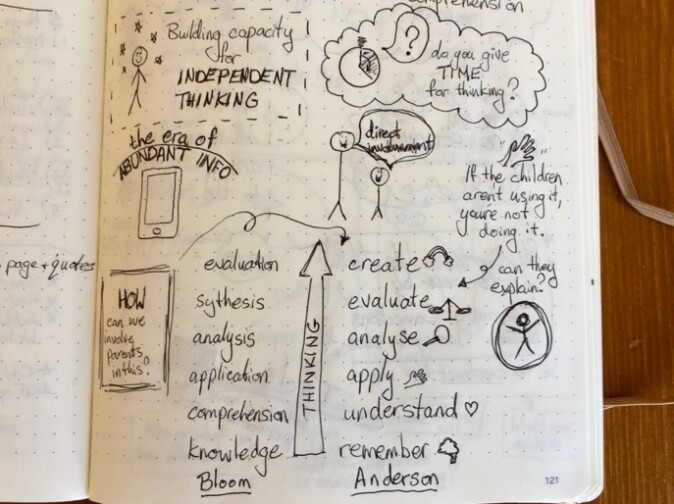 Building capacity
for
INDEPENDENT
THINKING
?
do you give
TIME
for thinking?
the era of
ABUNDANT INFO
direct
If the children
aren't using it,
you're not
doing it.
page + quotes
HOW
can we
involve
parents
in this.
evaluation
sythesis
analysis
application
comprehension
knowledge
Bloom
THINKING
create
evaluate
analyse
apply
understand
remember
Anderson
can they
explain?
121